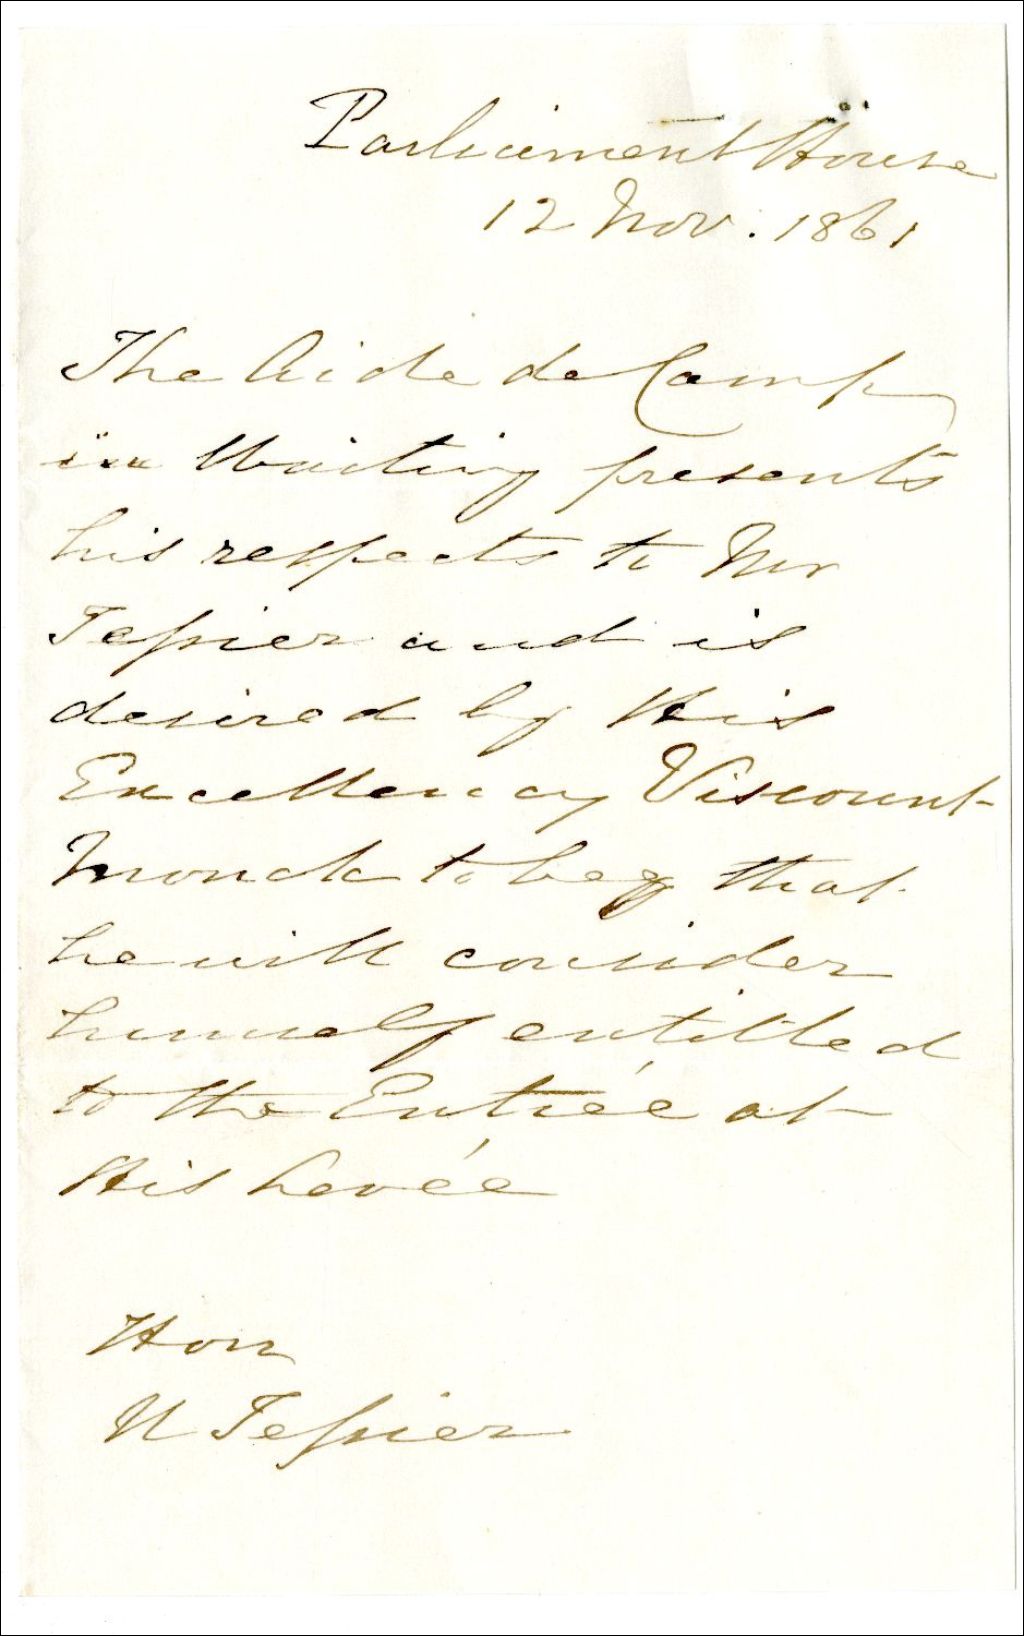 Parliament House
12 Nov. 1861
The Aide de Camp
in Waiting presents
his respects to Mr
Tessier and is
desired by His
Excellency Viscount
Monck to beg that
he will consider
himself entitled
to the Entrée at
His Levée
Hon
U Tessier